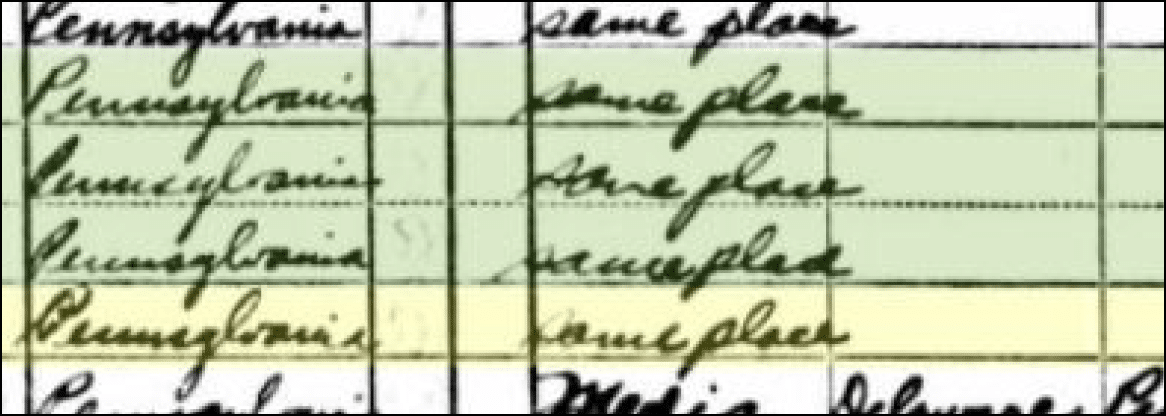 Pennsylvania same place
Pennsylvania same place
Pennsylvania same place
Pennsylvania same place
Pennsylvania same place
Pennsylvania Media Delaware